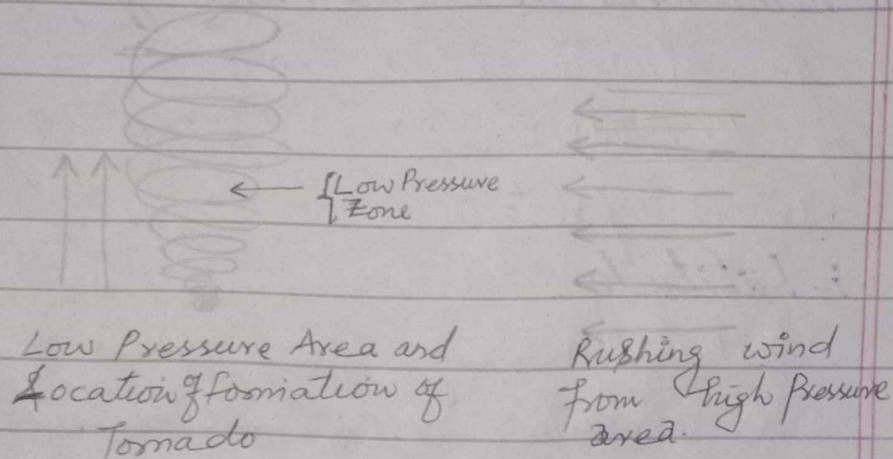 Low Pressure
Zone
Low Pressure Area and
Location of formation of
Tornado
Rushing wind
from high Pressure
area.